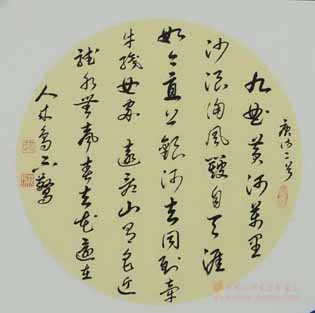 唐诗二首
九曲黄河萬里
沙浪淘風簸自天涯
如今直上銀河去同到牽
牛織女家 遠看山有色近
聽水無聲春去花還在
人來鳥不驚